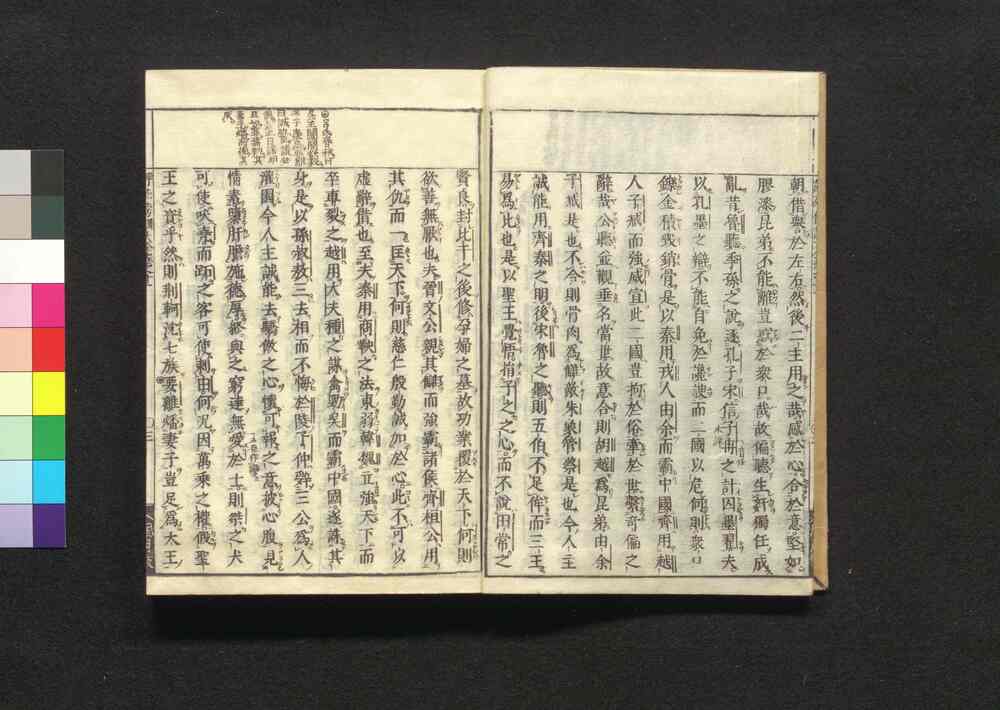 朝借譽於左右然後二主用之哉感於心合於意堅如
膠漆昆弟不能離豈惑於衆口哉故偏聽生奸獨任成
亂昔魯聽季孫之說逐孔子宋信子冉之計囚墨翟夫
以孔墨之辯不能自免於讒諛而二國以危何則衆口
鑠金積毀銷骨是以秦用戎人由余而霸中國齊用越
人子臧而強威宣此二國豈拘於俗牽於世繫奇偏之
辭哉公聽並觀垂名當世故意合則胡越爲昆弟由余
子臧是也不合則骨肉爲讎敵朱象管蔡是也今人主
誠能用齊秦之明後宋魯之聽則五伯不足侔而三王
易爲比也是以聖王覺悟捐子之之心而不說田常之
賢良封比干之後修孕婦之墓故功業覆於天下何則
欲善無厭也夫晉文公親其讎而強霸諸侯齊桓公用
其仇而一匡天下何則慈仁殷勤誠加於心此不可以
虛辭借也至夫秦用商鞅之法東弱韓魏立強天下而
卒車裂之越用大夫種之謀禽勁吳而霸中國遂誅其
身是以孫叔敖三去相而不悔於陵子仲辭三公爲人
灌園今人主誠能去驕傲之心懷可報之意披心腹見
情素隳肝膽施德厚終與之窮達無愛於士則桀之犬
可使吠堯而跖之客可使刺由何况因萬乘之權假聖
王之資乎然則荆軻沈七族要離燔妻子豈足爲大王